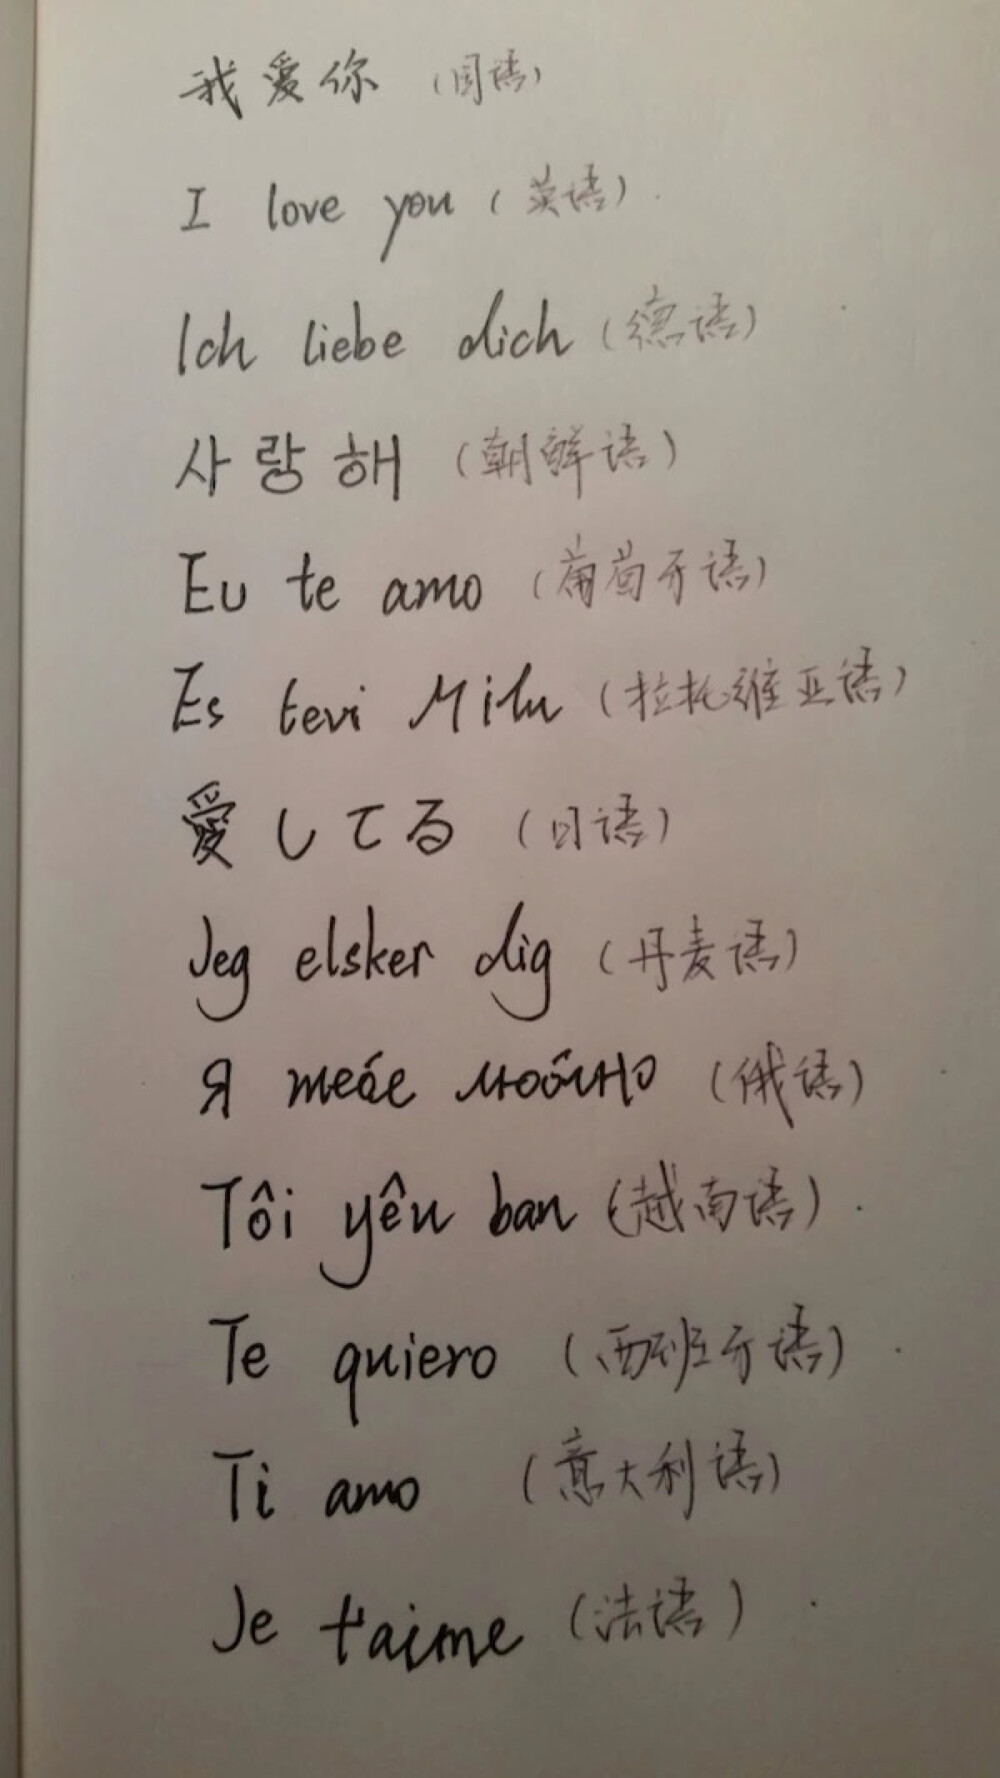 我爱你 (国语)
I love you (英语).
Ich liebe dich (德语)
사랑해 (朝鲜语)
Eu te amo (葡萄牙语)
Es tevi Milu (拉托维亚语)
愛してる (日语)
Jeg elsker dig (丹麦语)
Я тебе люблю (俄语)
Tôi yêu ban (越南语).
Te quiero (西班牙语).
Ti amo (意大利语)
Je t'aime (法语).